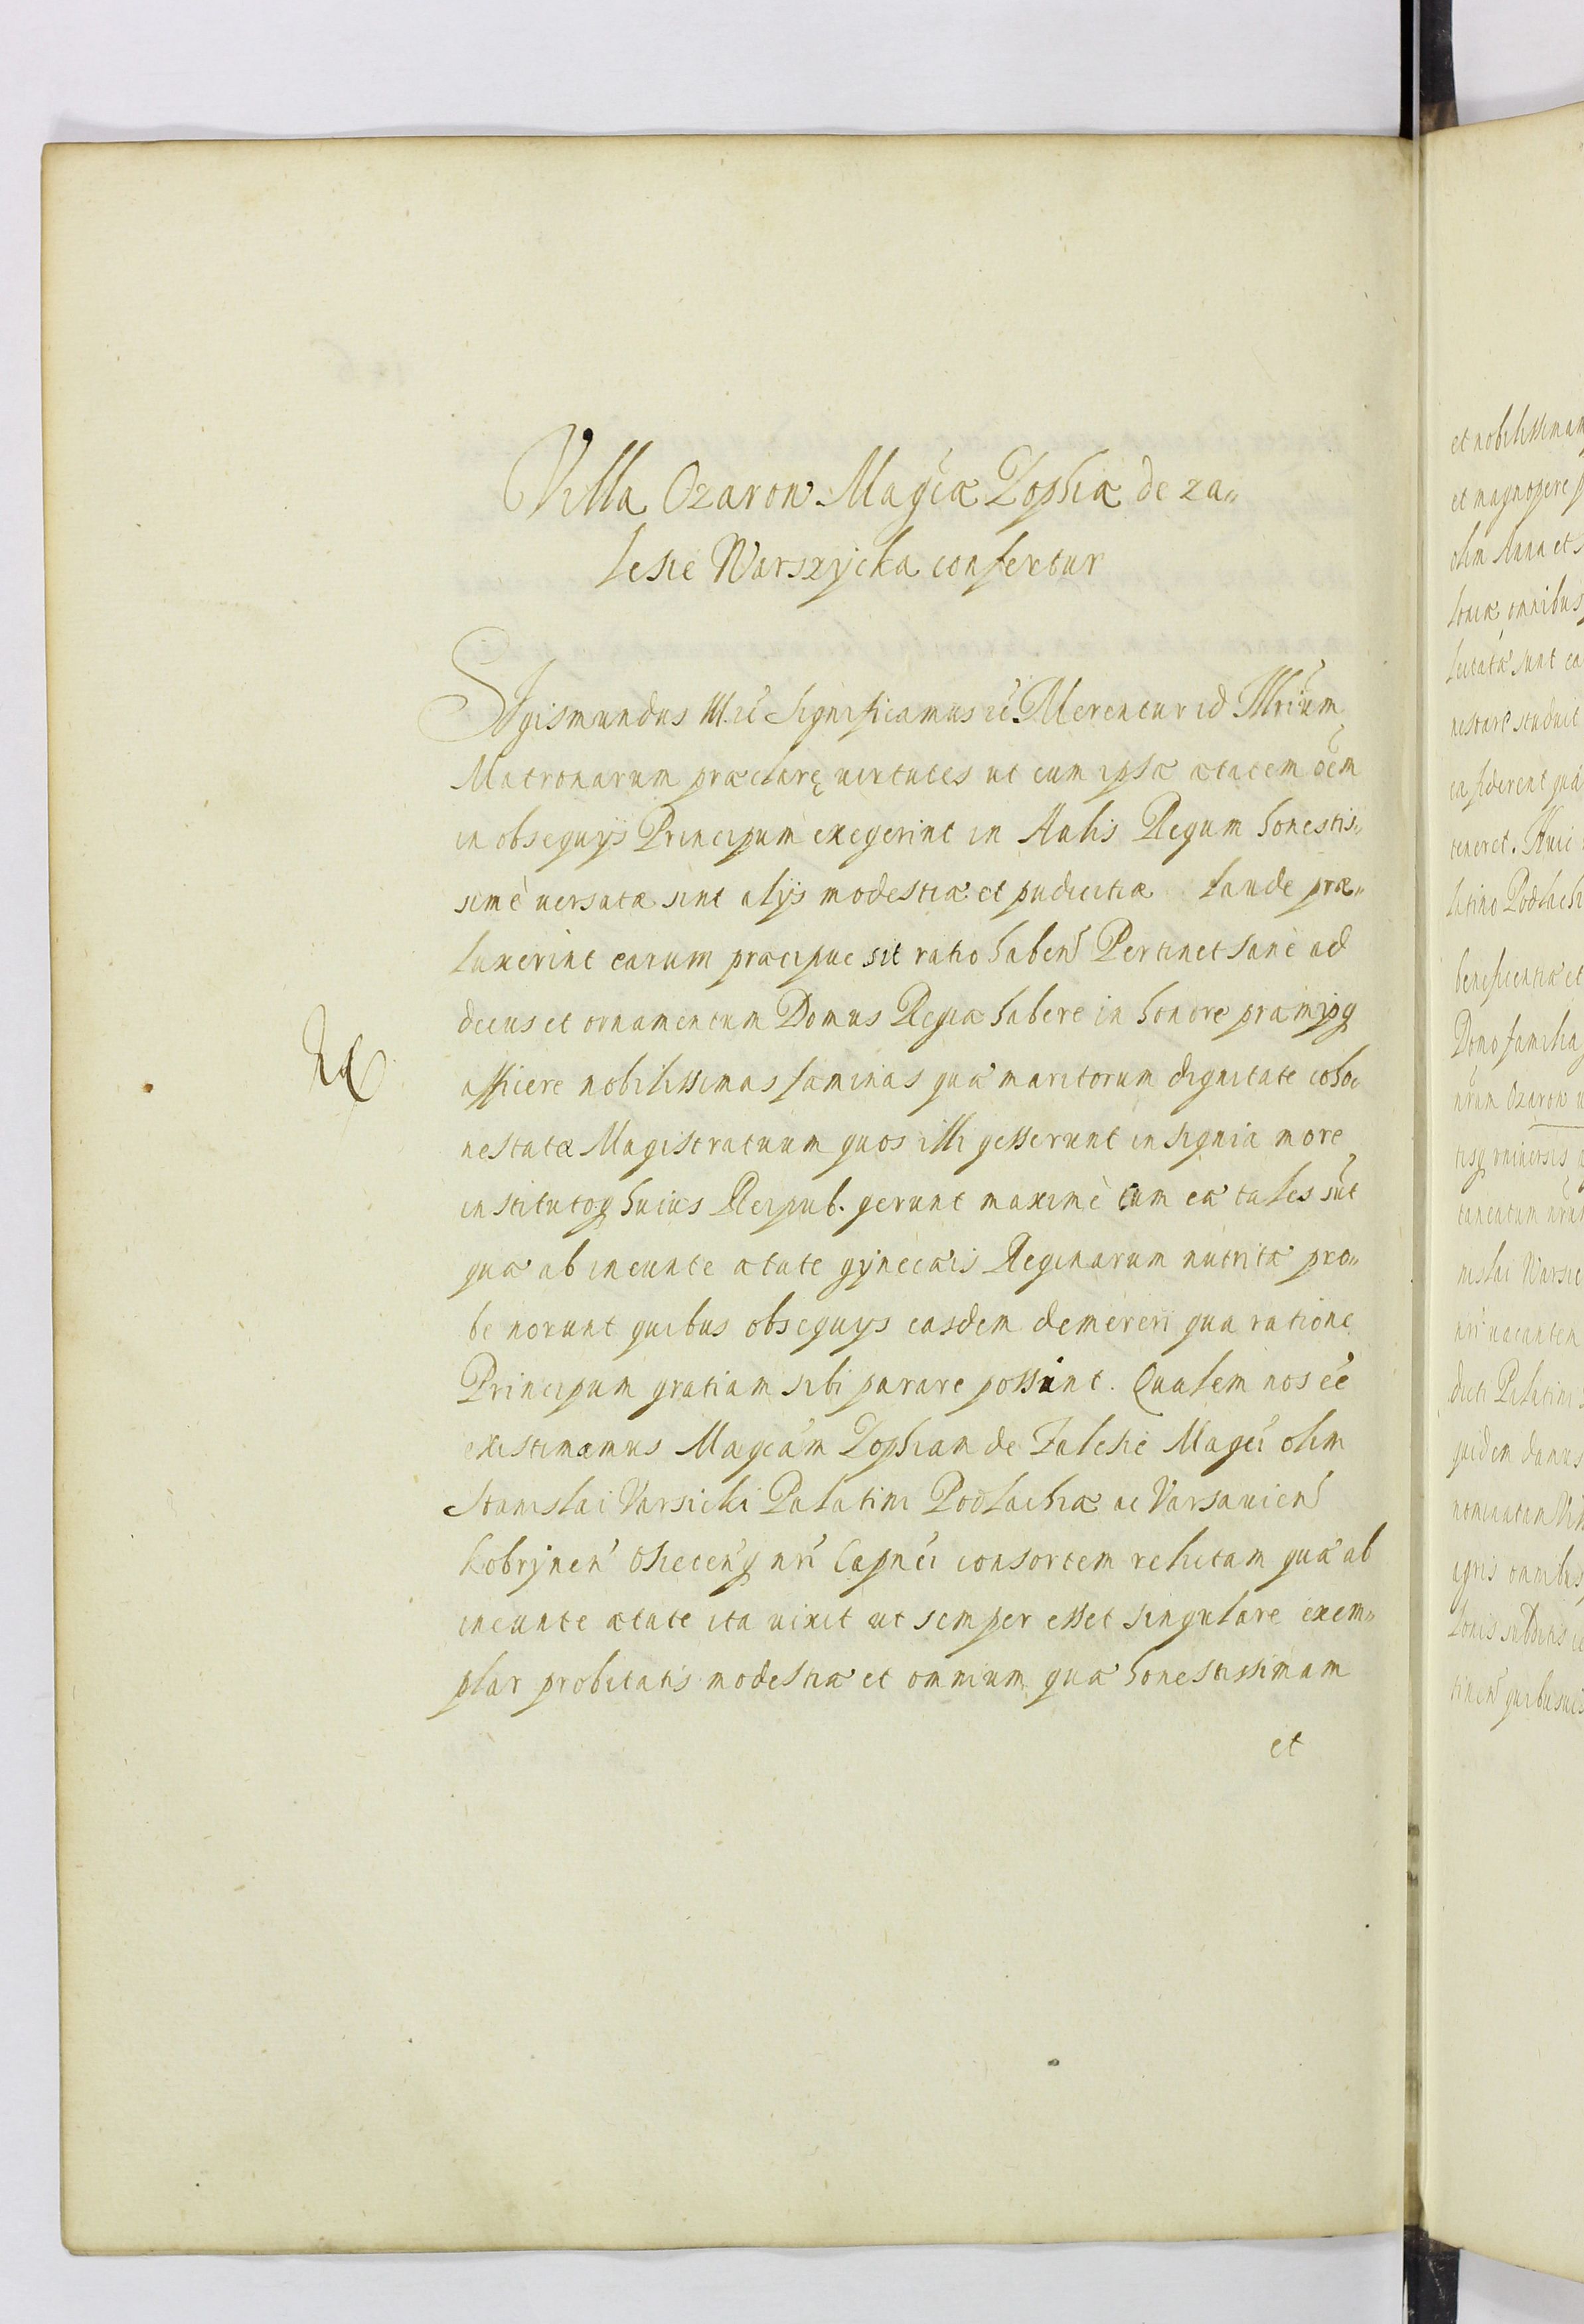 Villa Ozarow Magcæ Zophiæ de za„
lesie Warszycka confertur
Sigismundus III. ꝛc̃ Significamus ꝛc̃. Merentur id Illrĩum
Matronarum præclarę uirtutes ut cum ipsæ ætatem oẽm
in obsequijs Principum exegerint in Aulis Regum honestis„
simè uersatæ sint alijs modestiæ et pudicitiæ laude præ„
luxerint earum præcipue sit ratio haben̄ Pertinet sanè ad
decus et ornamentum Domus Regiæ habere in honore præmijsq
afficere nobilissimas fæminas quæ maritorum dignitate coho„
nestatæ Magistratuum quos illi gesserunt insignia more
institutoq huius Reipub. gerunt maximè cum eæ tales sũt
quæ ab ineunte ætate gynecæis Reginarum nutritæ pro„
be norunt quibus obsequijs easdem demereri qua ratione
Principum gratiam sibi parare possint. Qualem nos eẽ
existimamus Magcãm Zophiam de Zalesie Magcĩ olim
Stanislai Varsicki Palatini Podlachiæ ac Varsauien̄
Kobrynen̄ Osiecen̄q nrĩ Capnei consortem relictam quæ ab
ineunte ætate ita uixit ut semper esset singulare exem„
plar probitatis modestiæ et omnium quæ honestissimam
et
et nobilissimam
et magnopere
olim Anna et
loniæ omnibus
nestare studuit
teneret. Huic
latino Podlachi
beneficentiæ et
Domo familia
nrãm Ozarow
nislai Warsic
nrĩ uacanten
dicti Palatini
quidem damus
agris omnibus